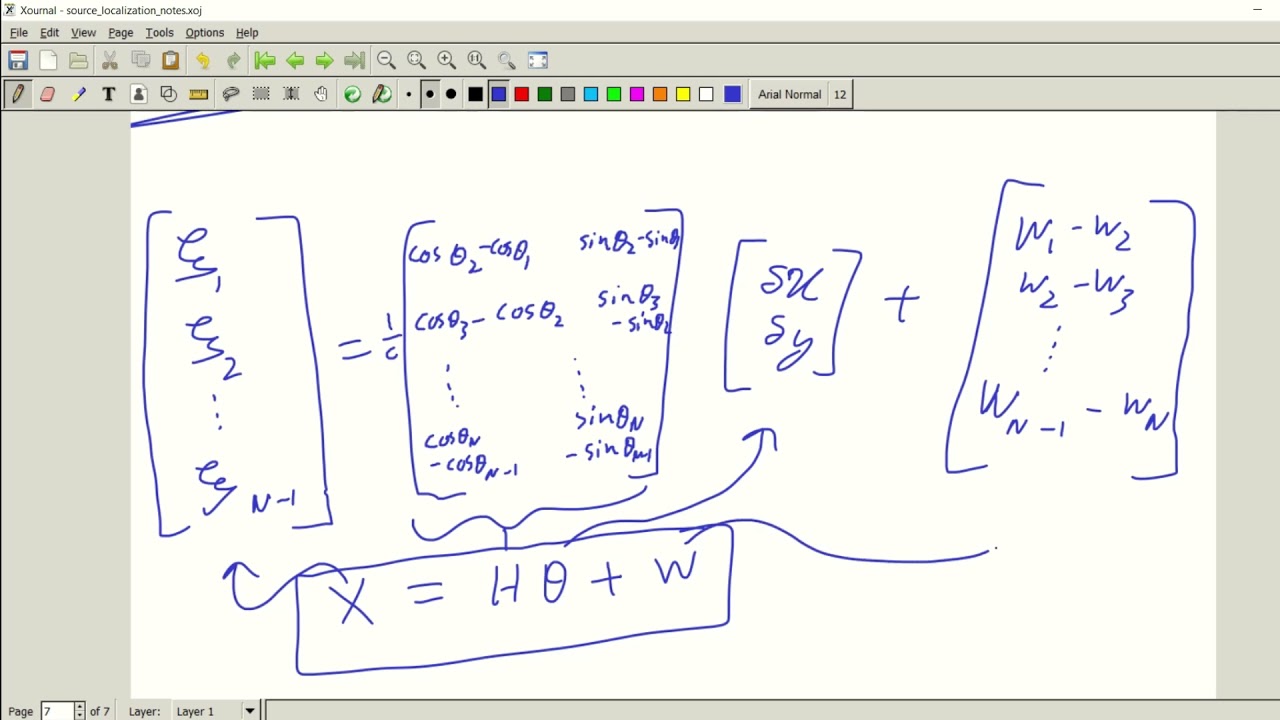 Xournal - source_localization_notes.xoj
File Edit View Page Tools Options Help
Arial Normal 12
ξ₁
ξ₂
⋮
ξ N-1
= 1/c
cosθ₂ - cosθ₁ sinθ₂ - sinθ₁
cosθ₃ - cosθ₂ sinθ₃ - sinθ₂
⋮ ⋮
cosθN - cosθN-1 sinθN - sinθN-1
δx
δy
+
W₁ - W₂
W₂ - W₃
⋮
WN-1 - WN
X = Hθ + W
Page 7 of 7 Layer: Layer 1